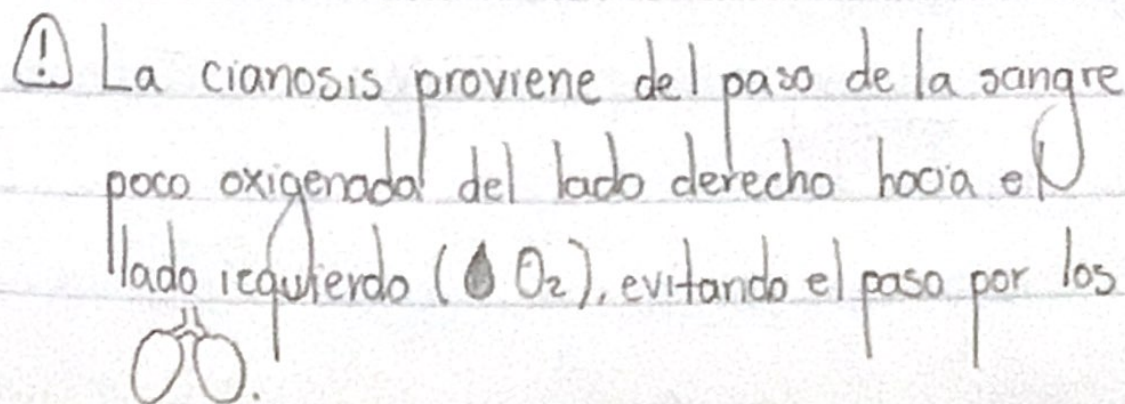 (!) La cianosis proviene del paso de la sangre
poco oxigenada del lado derecho hacia el
lado iequierdo (🌢 O₂), evitando el paso por los
.